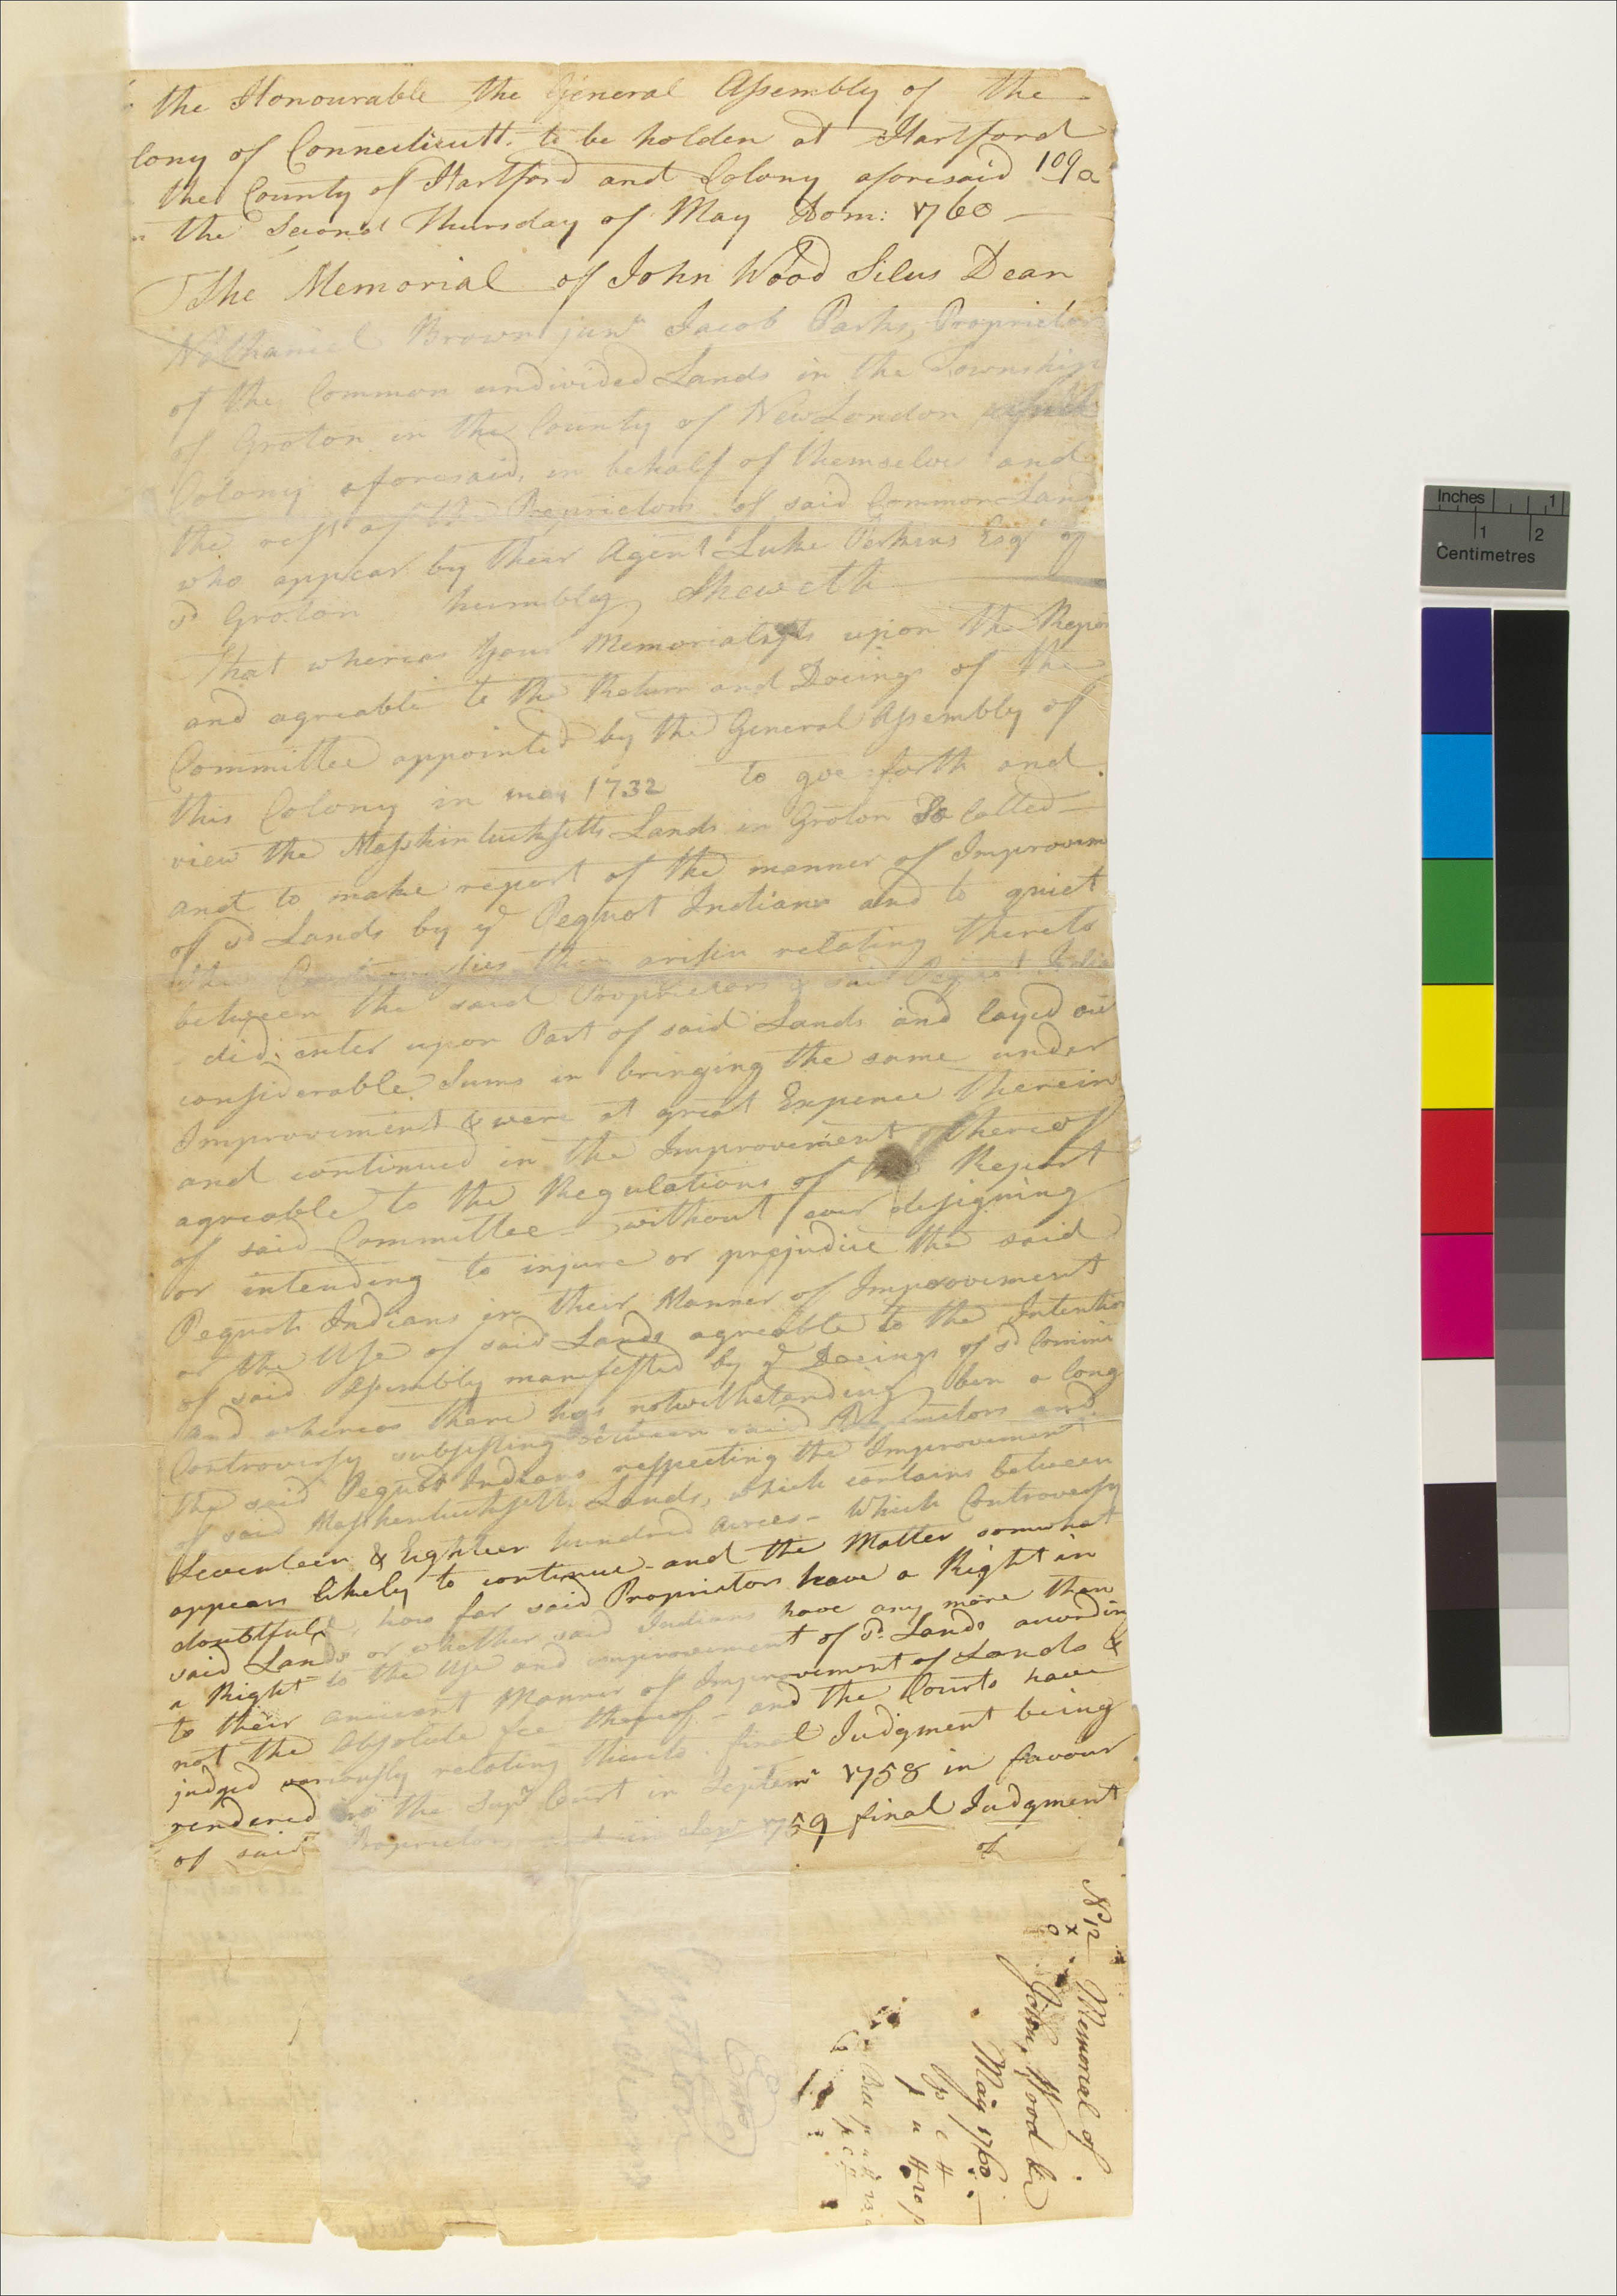 the Honourable the General Assembly of the
lony of Connecticutt. to be holden at Hartford
the County of Hartford and Colony aforesaid 109a
the Second Thursday of May Dom: 1760
The Memorial of John Wood Silus Dean
Nathaniel Brown junr Jacob Parks, Proprietors
of the Common undivided Lands in the Township
of Groton in the County of New London
Colony aforesaid, in behalf of themselves and
the rest of the Proprietors of said Common Land
who appear by their Agent Luke Perkins Esqr of
sd Groton humbly Sheweth
That whereas Your Memorialists upon the Repor
and agreable to the Return and Doeings of the
Committee appointed by the General Assembly of
this Colony in may 1732 to goe forth and
view the Masshintucksetts Lands in Groton So Called
and to make report of the manner of Improvem
of sd Lands by ye Pequot Indians and to quiet
the Controversies then arisen relating thereto
between the said Proprietors & said Pequot Indi
did enter upon Part of said Lands and layed out
considerable Sums in bringing the same under
Improvement & were at great Expence therein
and continued in the Improvement thereof
agreable to the Regulations of the Report
of said Committee without ever designing
or intending to injure or prejudice the said
Pequot Indians in their Manner of Improvement
or the Use of said Lands agreable to the Intention
of said Assembly manifested by ye Doeings of sd Commi
and whereas there has notwithstanding ben a long
Controversy subsisting between said Proprietors and
the said Pequot Indians respecting the Improvement
of said Masshentucksett Lands, which contains between
Seventeen & Eighteen hundred acres - Which Controversy
appears likely to continue - and the Matter somwhat
doubtful, how far said Proprietors have a Right in
said Lands or whether said Indians have any more than
a Right to the Use and improvement of sd Lands according
to their ancient Manner of Improvement of Lands &
not the Absolute fee thereof - and the Courts have
judged variously relating thereto. final Judgment being
rendered in the Supr Court in Septemr 1758 in favour
of said Proprietors and in Sepr 1759 final Judgment
of
No 12
Memorial of
John Wood &c
May 1760